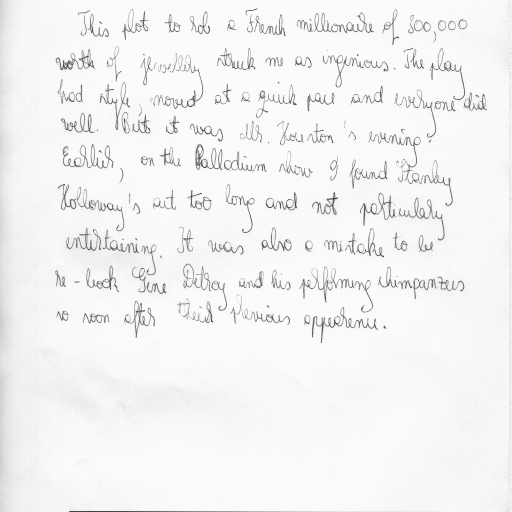 This plot to rob a French millionaire of 300,000
worth of jewellery struck me as ingenious. The play
had style, moved at a quick pace and everyone did
well. But it was Mr. Houston's evening.
Earlier, on the Palladium show I found Stanley
Holloway's act too long and not particularly
entertaining. It was also a mistake to be
re-book Gene Detroy and his performing chimpanzees
so soon after their previous appearence.